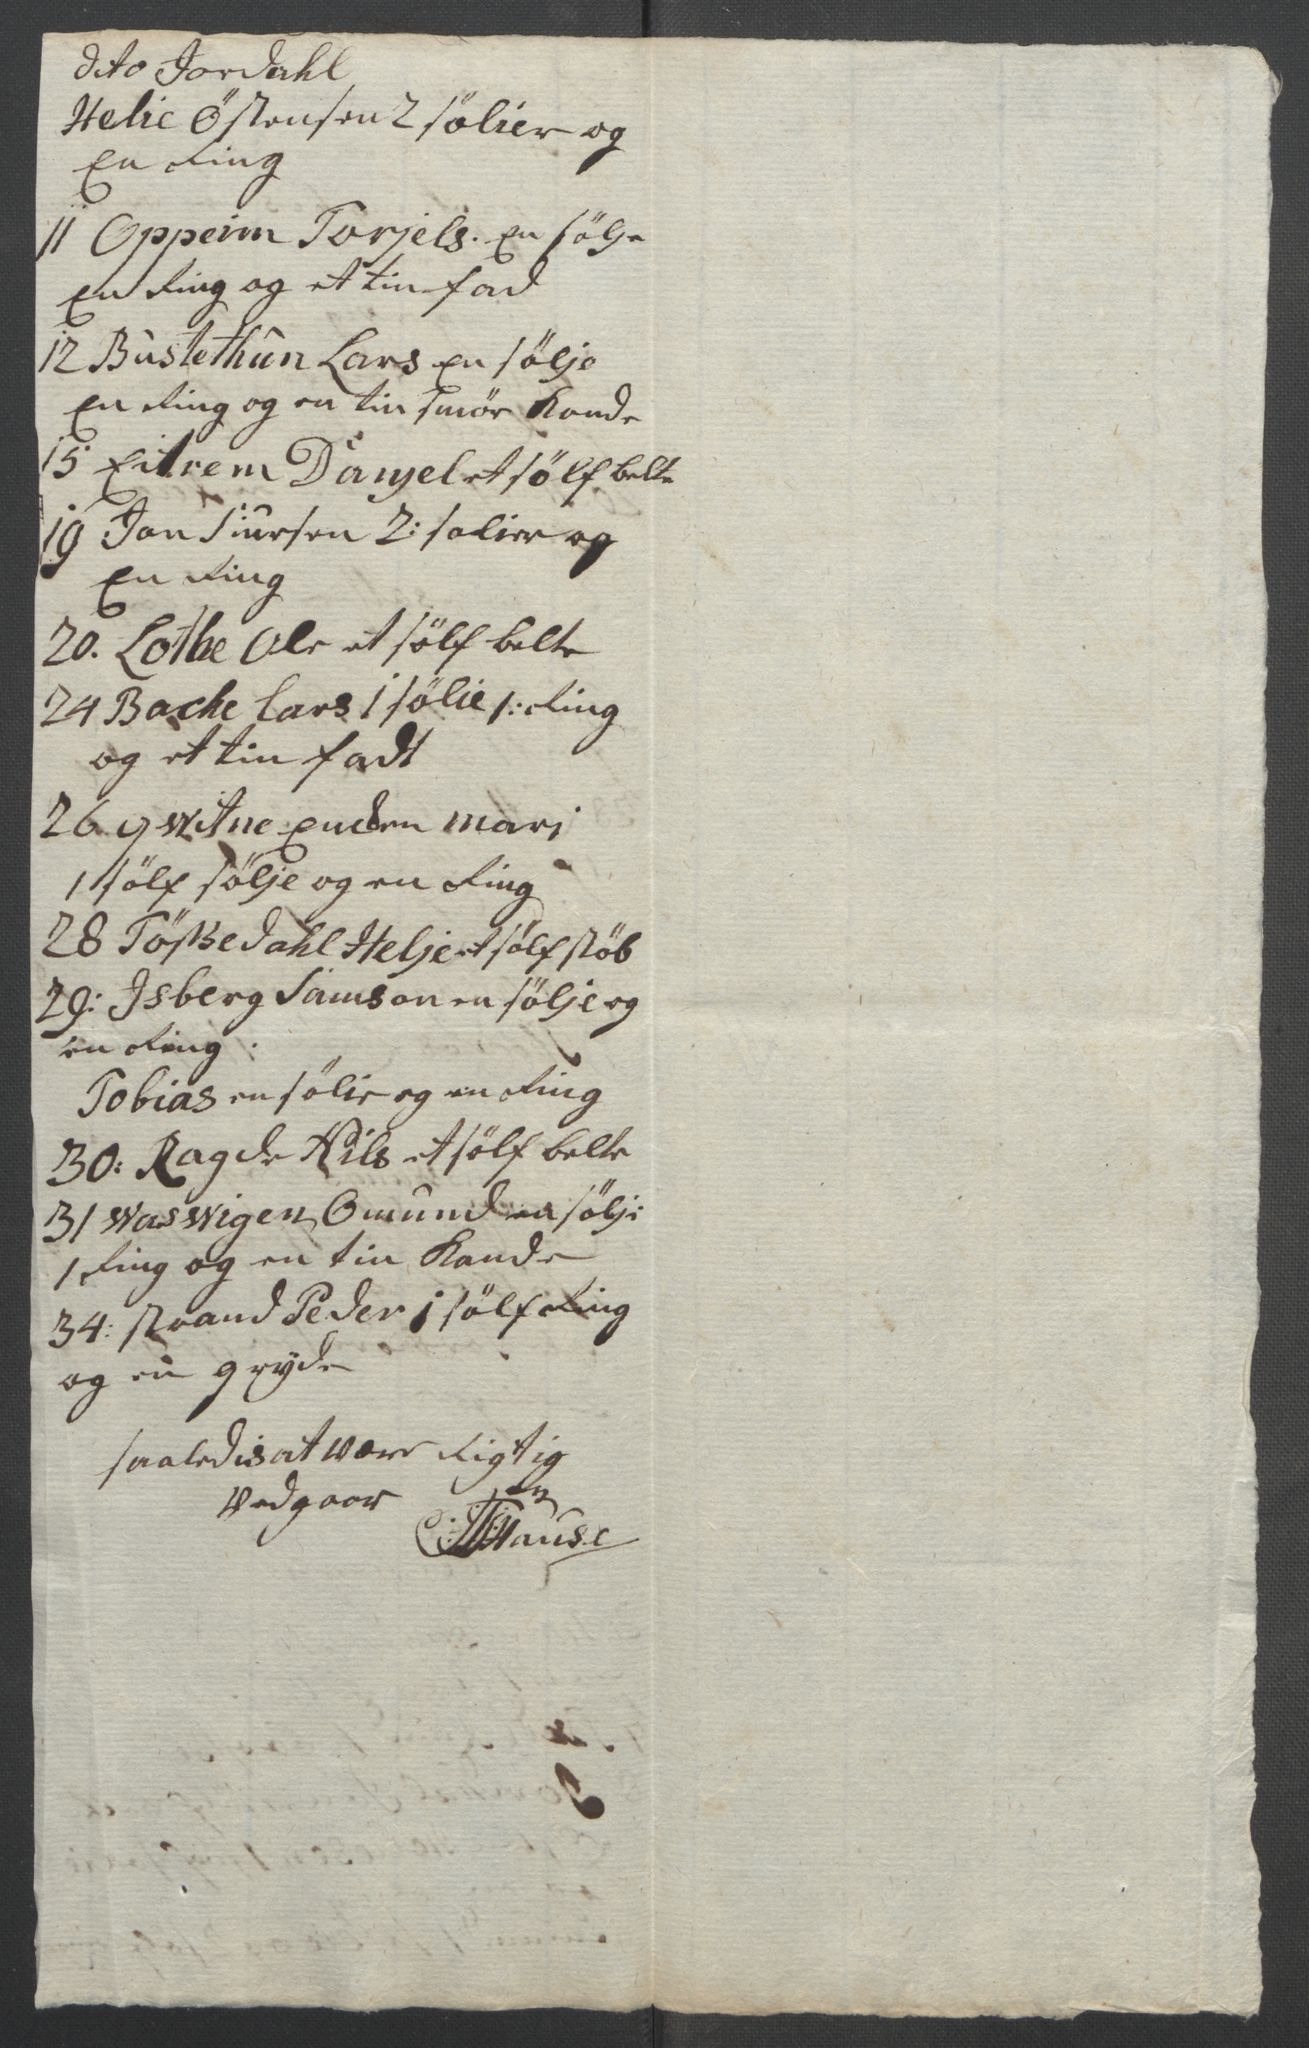 dito Jordahl
Helie Östensen 2 sölier og
En Ring
11 Oppeim Torjels. En sölje
En Ring og et tin fad
12 Bustethun Lars En sölje
En Ring og en tin smör Kande
15 Eitrem Danjel et sölf belte
19 Jon Siursen 2: solier og
En Ring
20. Lothe Ole et sölf belte
24 Bache Lars 1 sölie 1: Ring
og et tin fadt
26 qwitne Encken mari
1 sölf sölje og en Ring
28 Tösszedahl Helje et sölf stöb
29: Isberg Samson en sölje og
en Ring :
Tobias en sölie og en Ring
30: Ragde Nils et sölf belte
31 waswigen Omund en sölje
1 Ring og en tin Kande
34: strand Peder 1 sölf Ring
og en gryde
saaledis at være Rigtig
Vedgaar
Hause